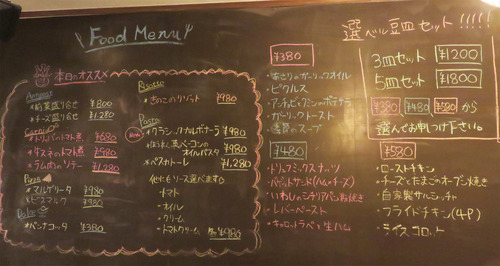 Food Menu
本日のオススメ
Antipasti
*前菜盛り合せ ¥800
*チーズ盛り合せ ¥1,280
*トリッパのトマト煮 ¥680
*牛スネのトマト煮 ¥980
*ラム肉のソテー ¥1,280
Pizza
*マルゲリータ ¥980
*ビスマルク ¥980
Dolce
*パンナコッタ ¥380
Risotto
*きのこのリゾット ¥980
Pasta
*クラシックカルボナーラ ¥980
ベーコンの
オイルパスタ ¥980
*ペスカトーレ ¥1,280
他にもソース選べます
トマト
・オイル
・クリーム
・トマトクリーム ¥980
選べル豆皿セット!!!!!
3皿セット ¥1200
5皿セット ¥1800
¥380 ・ ¥480 ・ ¥580 から
選んでお申しつけ下さい。
¥380
・あさりのガーリックオイル
・ピクルス
・アンチョビブシのポテサラ
・ガーリックトースト
のスープ
¥480
・トリュフミックスナッツ
・バゲットサンド(ハム・チーズ)
・いわしのシチリアパン粉焼き
・レバーペースト
・キャロットラペと生ハム
¥580
・ローストチキン
・チーズとたまごのオーブン焼き
・自家製サルシッチャ
・フライドチキン(4P)
・ライスコロッケ